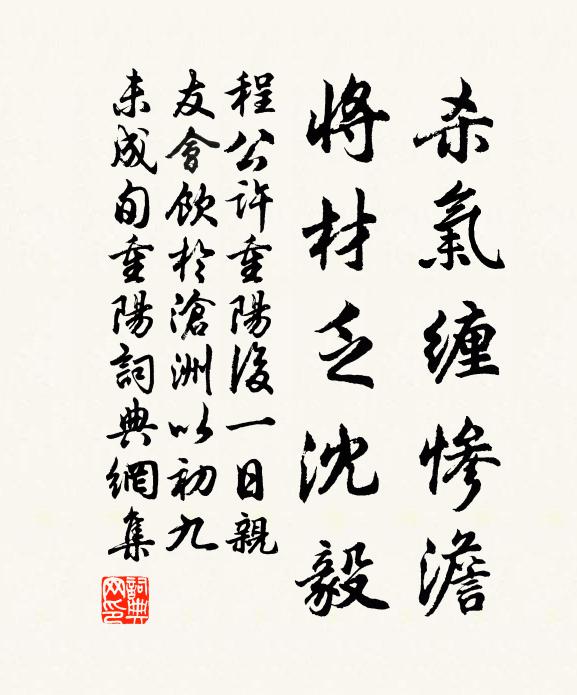 杀氣缠慘澹
將材乏沈毅
程公许重陽後一日親
友會飲於滄洲以初九
未成旬重陽詞典網集
詞典網印